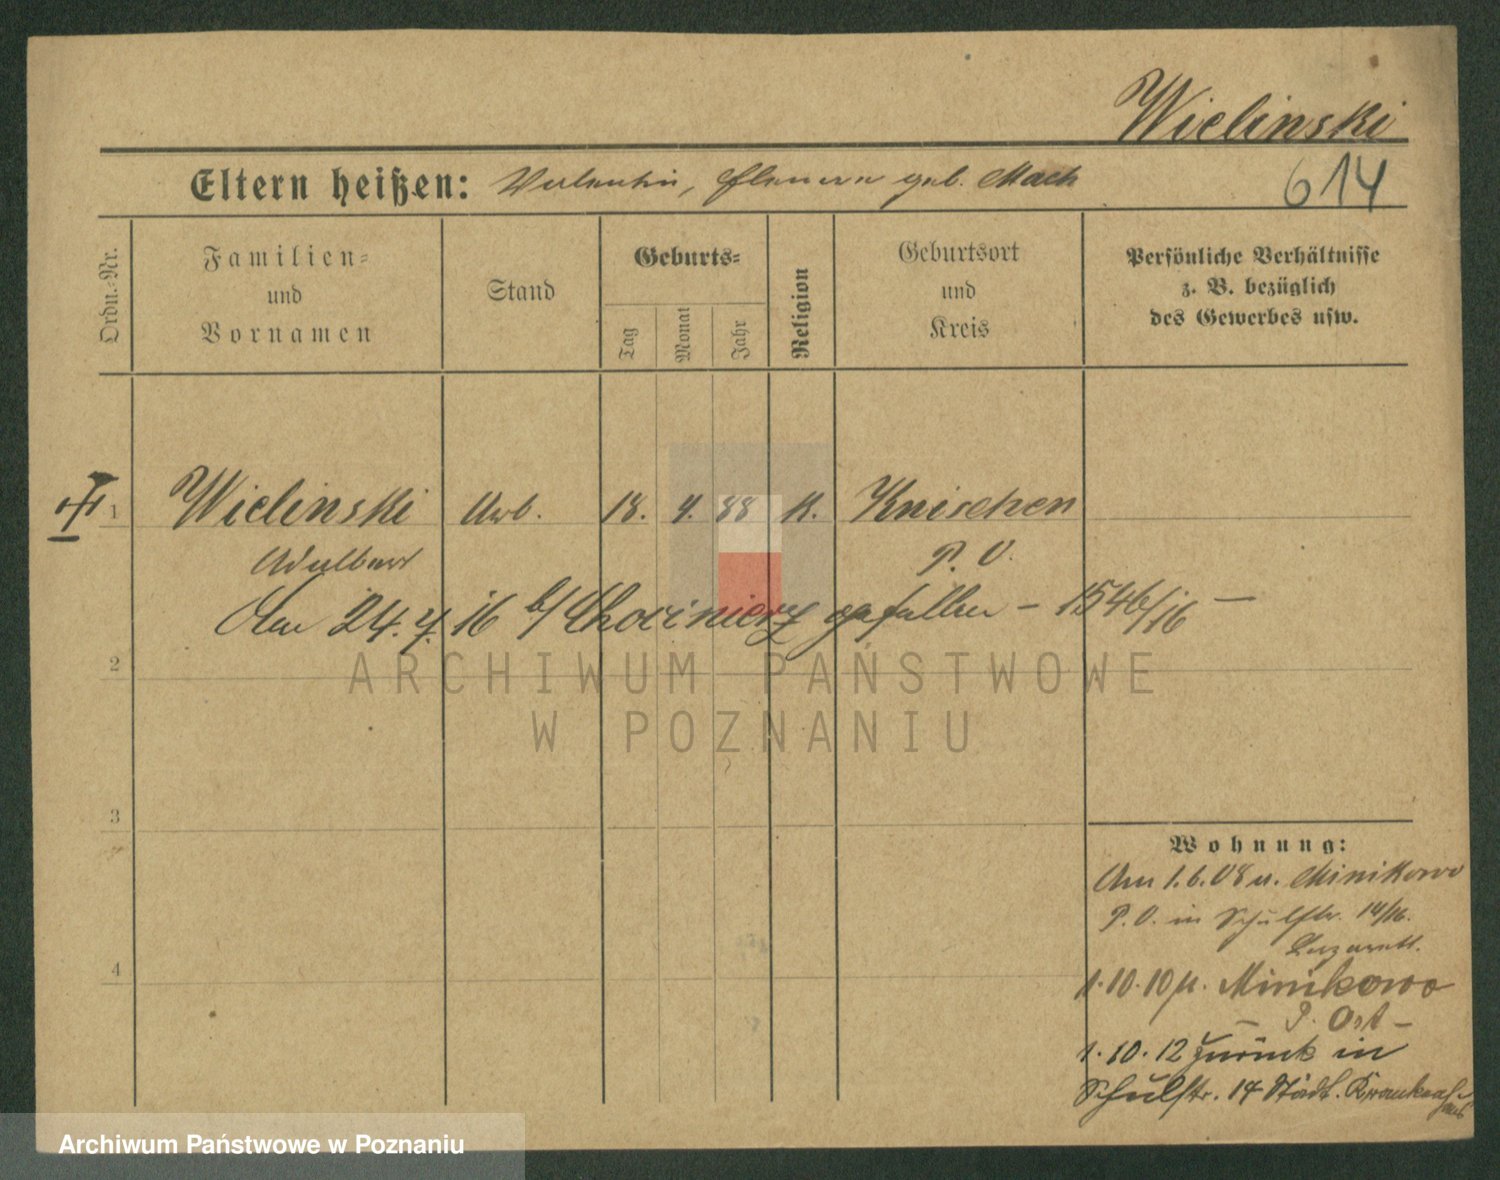 Wielinski
614
Eltern heißen: Valentin, geb. Mach
Ordn.-Nr.
Familien-
und
Vornamen
Stand
Geburts-
Tag
Monat
Jahr
Religion
Geburtsort
und
Kreis
Persönliche Verhältnisse
z. B. bezüglich
des Gewerbes usw.
1 Wielinski Arb. 18. 4. 88 K. Knischen
Adalbert P. O.
Am 24. 7. 16 b/ Chocimierz gefallen – 1546/16 –
2
3
4
Wohnung:
Am 1.6.08 n. Minikowo
P.O. in Schulstr. 14/16.
Lazarett.
1.10.10 n. Minikowo
– P. Ost –
1.10.12 zurück in
Schulstr. 14 Städt. Krankenhaus
ARCHIWUM PAŃSTWOWE
W POZNANIU
Archiwum Państwowe w Poznaniu